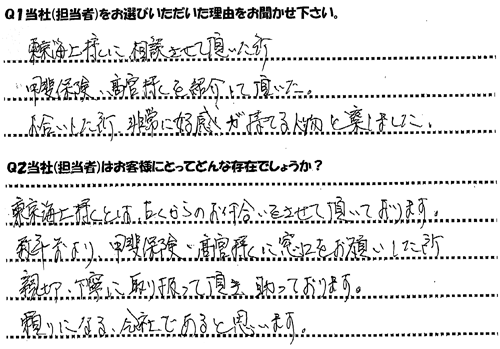 Q1当社(担当者)をお選びいただいた理由をお聞かせ下さい。
東京海上様に相談させて頂いた所
甲斐保険、髙宮様を紹介して頂いた。
お会いした所、非常に好感が持てる人物と感じました。
Q2当社(担当者)はお客様にとってどんな存在でしょうか?
東京海上様とは、古くからのお付合いをさせて頂いております。
数年前より、甲斐保険、髙宮様に窓口をお願いした所
親切、丁寧に取り扱って頂き、助っております。
頼りになる、会社であると思います。